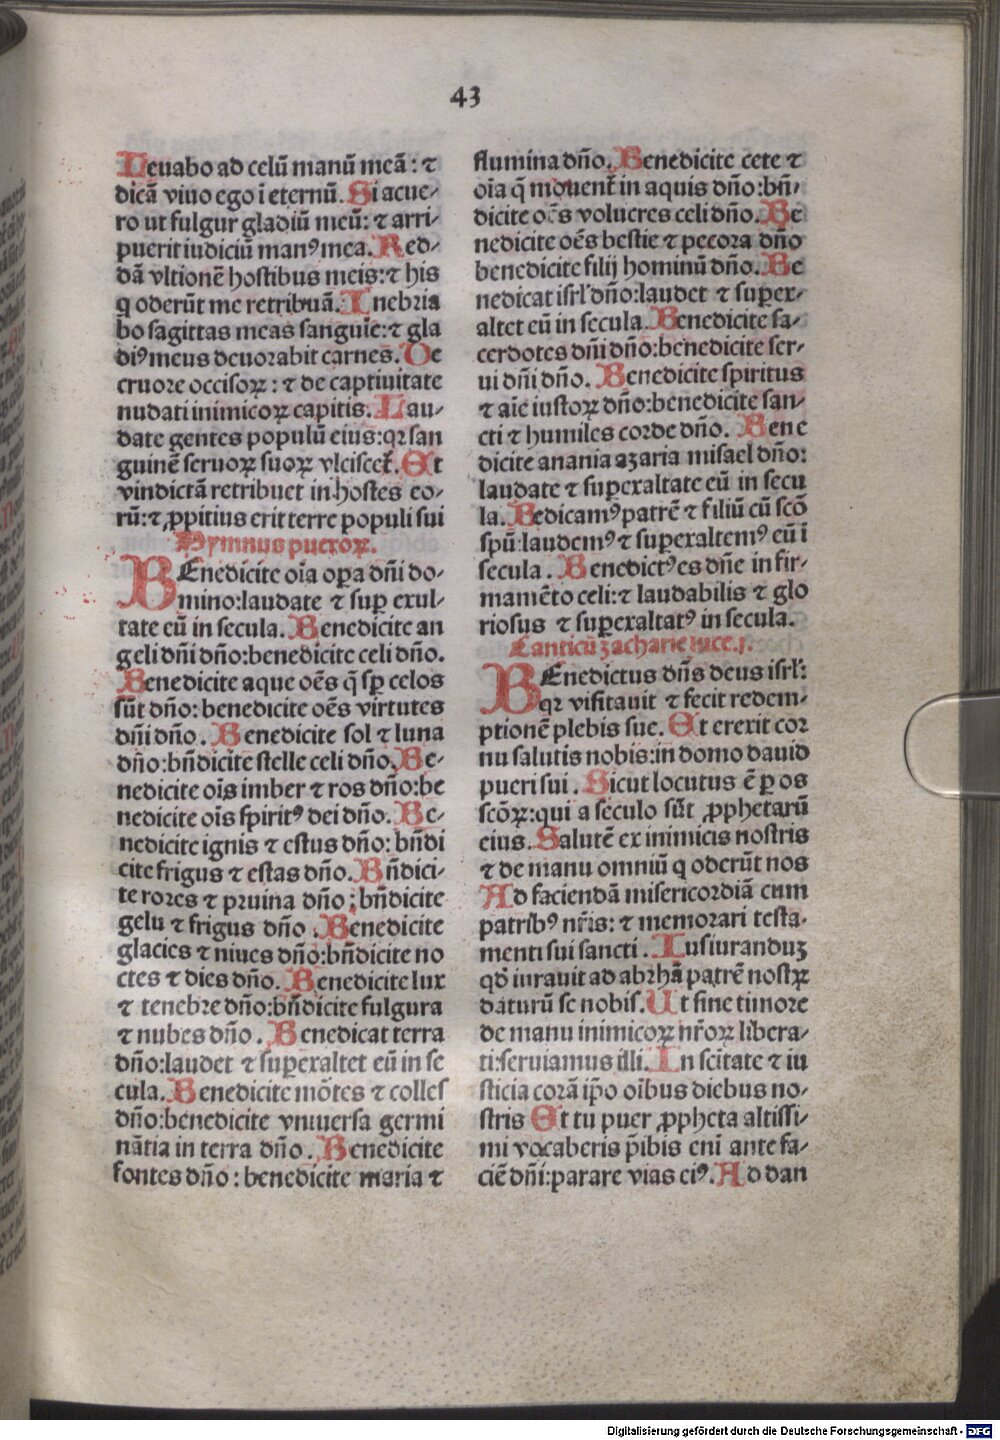 43
Leuabo ad celū manū meā: ⁊
dicā viuo ego ī eternū. Si acue-
ro ut fulgur gladiū meū: ⁊ arri-
puerit iudiciū manꝰ mea. Red-
dā vltionē hostibus meis: ⁊ his
q oderūt me retribuā. Inebria
bo sagittas meas sanguīe: ⁊ gla
diꝰ meus deuorabit carnes. De
cruore occisoꝝ: ⁊ de captiuitate
nudati inimicoꝝ capitis. Lau-
date gentes populū eius: qꝛ san
guinē seruoꝝ suoꝝ vlciscet̄. Et
vindictā retribuet in hostes eo-
rū: ⁊ ꝓpitius erit terre populi sui
Hymnus pueroꝝ.
BEnedicite oīa oꝑa dn̄i do-
mino: laudate ⁊ suꝑ exul-
tate eū in secula. Benedicite an
geli dn̄i dn̄o: benedicite celi dn̄o.
Benedicite aque oēs q̄ sꝑ celos
sūt dn̄o: benedicite oēs virtutes
dn̄i dn̄o. Benedicite sol ⁊ luna
dn̄o: bn̄dicite stelle celi dn̄o. Be-
nedicite oīs imber ⁊ ros dn̄o: be
nedicite oīs spiritꝰ dei dn̄o. Be-
nedicite ignis ⁊ estus dn̄o: bn̄di
cite frigus ⁊ estas dn̄o. Bn̄dici-
te rores ⁊ pruina dn̄o: bn̄dicite
gelu ⁊ frigus dn̄o. Benedicite
glacies ⁊ niues dn̄o: bn̄dicite no
ctes ⁊ dies dn̄o. Benedicite lux
⁊ tenebre dn̄o: bn̄dicite fulgura
⁊ nubes dn̄o. Benedicat terra
dn̄o: laudet ⁊ suꝑexaltet eū in se
cula. Benedicite mōtes ⁊ colles
dn̄o: benedicite vniuersa germi
nātia in terra dn̄o. Benedicite
fontes dn̄o: benedicite maria ⁊
flumina dn̄o. Benedicite cete ⁊
oīa q̄ mouent̄ in aquis dn̄o: bn̄-
dicite oēs volucres celi dn̄o. Be
nedicite oēs bestie ⁊ pecora dn̄o
benedicite filij hominū dn̄o. Be
nedicat isrl̄ dn̄o: laudet ⁊ suꝑex-
altet eū in secula. Benedicite sa-
cerdotes dn̄i dn̄o: benedicite ser-
ui dn̄i dn̄o. Benedicite spiritus
⁊ aīe iustoꝝ dn̄o: benedicite san-
cti ⁊ humiles corde dn̄o. Bene
dicite anania azaria misael dn̄o:
laudate ⁊ suꝑexaltate eū in secu
la. Bedicamꝰ patrē ⁊ filiū cū scō
spū: laudemꝰ ⁊ suꝑexaltemꝰ eū ī
secula. Benedictꝰ es dn̄e in fir-
mamēto celi: ⁊ laudabilis ⁊ glo
riosus ⁊ suꝑexaltatꝰ in secula.
Canticū zacharie luce.j.
BEnedictus dn̄s deus isrl̄:
qꝛ visitauit ⁊ fecit redem-
ptionē plebis sue. Et erexit cor
nu salutis nobis: in domo dauid
pueri sui. Sicut locutus ē ꝑ os
scōꝝ: qui a seculo sūt ꝓphetarū
eius. Salutē ex inimicis nostris
⁊ de manu omniū q oderūt nos
Ad faciendā misericordiā cum
patribꝰ nr̄is: ⁊ memorari testa-
menti sui sancti. Iusiuranduꝫ
qd̄ iurauit ad abrhā patrē nostꝝ
daturū se nobis. Ut sine timore
de manu inimicoꝝ nr̄oꝝ libera-
ti: seruiamus illi. In scītate ⁊ iu
sticia corā ip̄o oībus diebus no-
stris Et tu puer ꝓpheta altissi-
mi vocaberis p̄ibis enī ante fa-
ciē dn̄i: parare vias eiꝰ. Ad dan
Digitalisierung gefördert durch die Deutsche Forschungsgemeinschaft - DFG